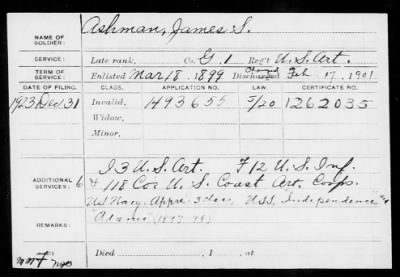 NAME OF SOLDIER: Ashman, James S.
SERVICE: Late rank, Co. G. 1 Reg't U.S. Art.
TERM OF SERVICE: Enlisted Mar 18, 1899 Discharged Feb 17, 1901
DATE OF FILING. CLASS. APPLICATION NO. LAW. CERTIFICATE NO.
1923 Dec 31 Invalid, 1493655 5/20 1262035
Widow,
Minor,
ADDITIONAL SERVICES: I 3 U.S. Art. F 12 U.S. Inf.
& 118 Co. U.S. Coast Art. Corps.
U.S. Navy. Appre. 3 class, USS, Independence &
"Adams" (1897-98)
REMARKS:
Died , 1 , at